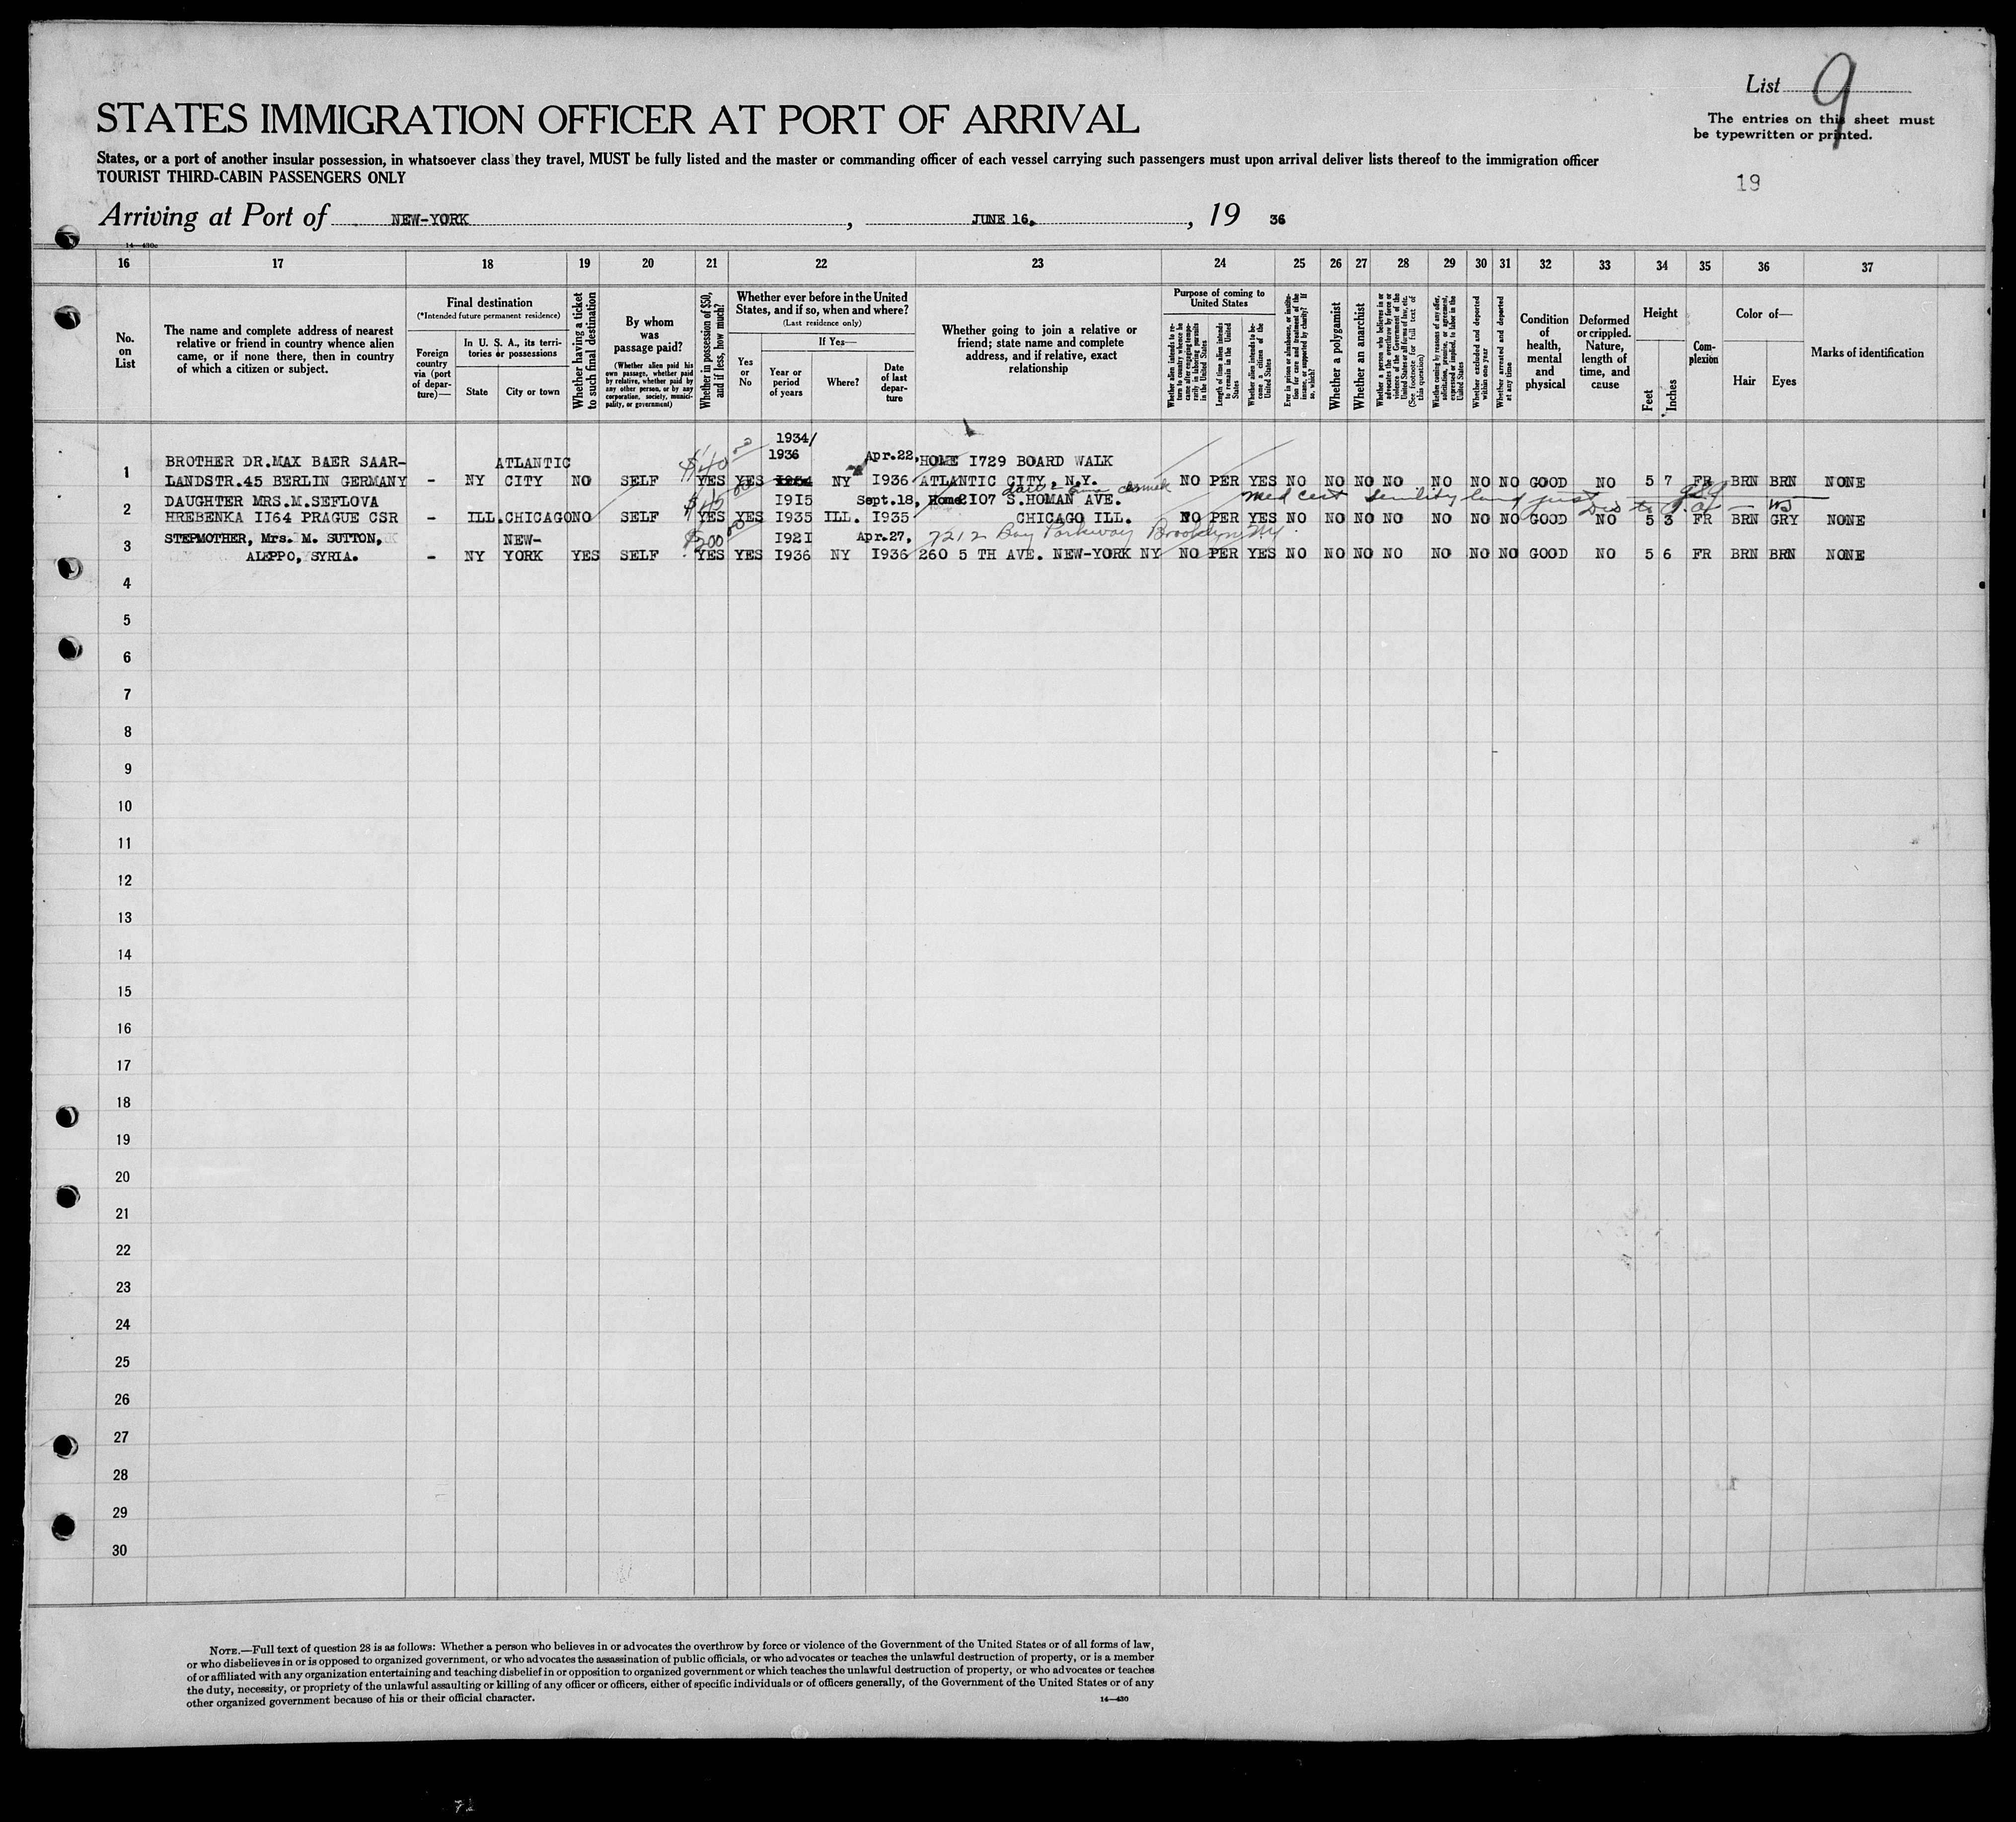 List 9
STATES IMMIGRATION OFFICER AT PORT OF ARRIVAL
The entries on this sheet must
be typewritten or printed.
States, or a port of another insular possession, in whatsoever class they travel, MUST be fully listed and the master or commanding officer of each vessel carrying such passengers must upon arrival deliver lists thereof to the immigration officer
TOURIST THIRD-CABIN PASSENGERS ONLY
19
Arriving at Port of NEW-YORK, JUNE 16, 19 36
14—430c
16 17 18 19 20 21 22 23 24 25 26 27 28 29 30 31 32 33 34 35 36 37
No. on List
The name and complete address of nearest
relative or friend in country whence alien
came, or if none there, then in country
of which a citizen or subject.
Final destination
(*Intended future permanent residence)
Foreign country via (port of departure)—
In U. S. A., its territories or possessions
State
City or town
Whether having a ticket to such final destination
By whom was passage paid?
(Whether alien paid his own passage, whether paid by relative, whether paid by any other person, or by any corporation, society, municipality, or government)
Whether in possession of $50, and if less, how much?
Whether ever before in the United States, and if so, when and where?
(Last residence only)
Yes or No
If Yes—
Year or period of years
Where?
Date of last departure
Whether going to join a relative or
friend; state name and complete
address, and if relative, exact
relationship
Purpose of coming to United States
Whether alien intends to return to country whence he came after engaging temporarily in laboring pursuits in the United States
Length of time alien intends to remain in the United States
Whether alien intends to become a citizen of the United States
Ever in prison or almshouse, or institution for care and treatment of the insane, or supported by charity? If so, which?
Whether a polygamist
Whether an anarchist
Whether a person who believes in or advocates the overthrow by force or violence of the Government of the United States or all forms of law, etc. (See footnote for full text of this question)
Whether coming by reasons of any offer, solicitation, promise, or agreement, expressed or implied, to labor in the United States
Whether excluded and deported within one year
Whether arrested and deported at any time
Condition of health, mental and physical
Deformed or crippled. Nature, length of time, and cause
Height
Feet
Inches
Complexion
Color of—
Hair
Eyes
Marks of identification
1934/
BROTHER DR.MAX BAER SAAR- ATLANTIC $40.00 1936 Apr.22, HOME I729 BOARD WALK
1 LANDSTR.45 BERLIN GERMANY - NY CITY NO SELF YES YES NY I936 ATLANTIC CITY, N.Y. NO PER YES NO NO NO NO NO NO NO GOOD NO 5 7 FR BRN BRN NONE
DAUGHTER MRS.M.SEFLOVA $45.00 I9I5 Sept.18, Home 2I07 S.HOMAN AVE. Med cert senility
2 HREBENKA II64 PRAGUE CSR - ILL. CHICAGO NO SELF YES YES I935 ILL. I935 CHICAGO ILL. NO PER YES NO NO NO NO NO NO NO GOOD NO 5 3 FR BRN GRY NONE
STEPMOTHER, Mrs. M. SUTTON, NEW- $200.00 I92I Apr.27, 7212 Bay Parkway Brooklyn NY
3 ALEPPO, SYRIA. - NY YORK YES SELF YES YES I936 NY I936 260 5 TH AVE. NEW-YORK NY NO PER YES NO NO NO NO NO NO NO GOOD NO 5 6 FR BRN BRN NONE
4
5
6
7
8
9
10
11
12
13
14
15
16
17
18
19
20
21
22
23
24
25
26
27
28
29
30
NOTE.—Full text of question 28 is as follows: Whether a person who believes in or advocates the overthrow by force or violence of the Government of the United States or of all forms of law,
or who disbelieves in or is opposed to organized government, or who advocates the assassination of public officials, or who advocates or teaches the unlawful destruction of property, or is a member
of or affiliated with any organization entertaining and teaching disbelief in or opposition to organized government or which teaches the unlawful destruction of property, or who advocates or teaches
the duty, necessity, or propriety of the unlawful assaulting or killing of any officer or officers, either of specific individuals or of officers generally, of the Government of the United States or of any
other organized government because of his or their official character.
14—430